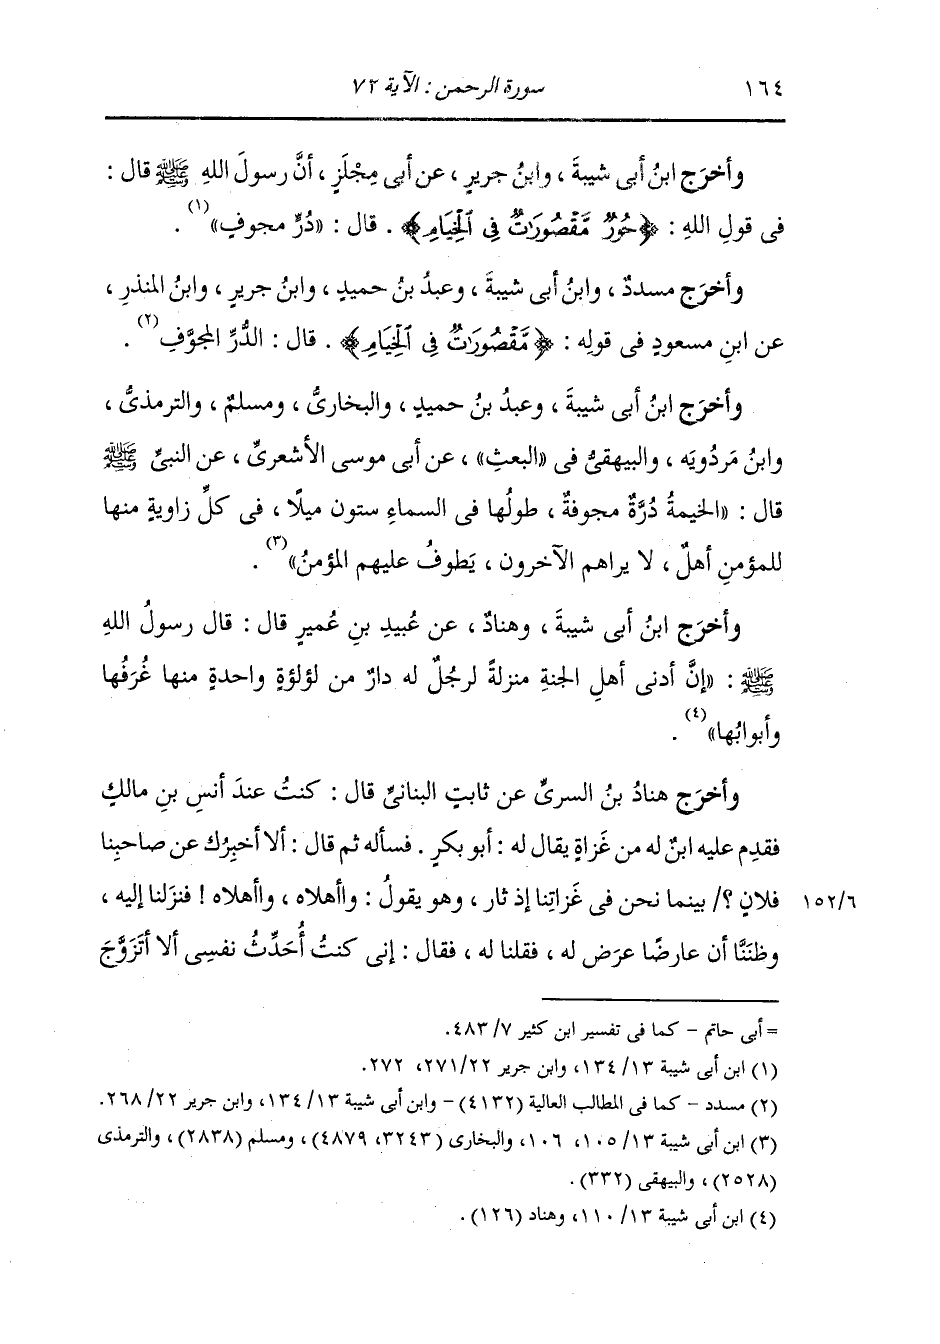 ١٦٤ سورة الرحمن : الآية ٧٢
وأخرَج ابنُ أبى شيبةَ ، وابنُ جريرٍ ، عن أبى مِجْلَزٍ ، أنَّ رسولَ اللهِ ﷺ قال :
فى قولِ اللهِ : ﴿حُورٌ مَّقْصُورَٰتٌ فِى ٱلْخِيَامِ﴾ . قال : «دُرٌّ مجوفٍ»(١) .
وأخرَج مسددٌ ، وابنُ أبى شيبةَ ، وعبدُ بنُ حميدٍ ، وابنُ جريرٍ ، وابنُ المنذرِ ،
عن ابنِ مسعودٍ فى قولِه : ﴿مَّقْصُورَٰتٌ فِى ٱلْخِيَامِ﴾ . قال : الدُّرِّ المجوَّفِ(٢) .
وأخرَج ابنُ أبى شيبةَ ، وعبدُ بنُ حميدٍ ، والبخارىُّ ، ومسلمٌ ، والترمذىُّ ،
وابنُ مَردُويَه ، والبيهقىُّ فى «البعثِ» ، عن أبى موسى الأشعرىِّ ، عن النبىِّ ﷺ
قال : «الخيمةُ دُرَّةٌ مجوفةٌ ، طولُها فى السماءِ ستون ميلًا ، فى كلِّ زاويةٍ منها
للمؤمنِ أهلٌ ، لا يراهم الآخرون ، يَطوفُ عليهم المؤمنُ»(٣) .
وأخرَج ابنُ أبى شيبةَ ، وهنادٌ ، عن عُبيدِ بنِ عُميرٍ قال : قال رسولُ اللهِ
ﷺ : «إنَّ أدنى أهلِ الجنةِ منزلةً لرجُلٌ له دارٌ من لؤلؤةٍ واحدةٍ منها غُرَفُها
وأبوابُها»(٤) .
وأخرَج هنادُ بنُ السرىِّ عن ثابتٍ البنانىِّ قال : كنتُ عندَ أنسِ بنِ مالكٍ
فقدِم عليه ابنٌ له من غَزاةٍ يقال له : أبو بكرٍ . فسأله ثم قال : ألا أخبِرُك عن صاحبِنا
فلانٍ ؟/ بينما نحن فى غَزاتِنا إذ ثار ، وهو يقولُ : واأهلاه ، واأهلاه ! فنزَلنا إليه ، ١٥٢/٦
وظنَنَّا أن عارضًا عرَض له ، فقلنا له ، فقال : إنى كنتُ أُحَدِّثُ نفسِى ألا أتَزَوَّجَ
= أبى حاتم - كما فى تفسير ابن كثير ٧/ ٤٨٣.
(١) ابن أبى شيبة ١٣/ ١٣٤، وابن جرير ٢٢/ ٢٧١، ٢٧٢.
(٢) مسدد - كما فى المطالب العالية (٤١٣٢) - وابن أبى شيبة ١٣/ ١٣٤، وابن جرير ٢٢/ ٢٦٨.
(٣) ابن أبى شيبة ١٣/ ١٠٥، ١٠٦، والبخارى (٣٢٤٣، ٤٨٧٩) ، ومسلم (٢٨٣٨) ، والترمذى
(٢٥٢٨) ، والبيهقى (٣٣٢) .
(٤) ابن أبى شيبة ١٣/ ١١٠، وهناد (١٢٦) .